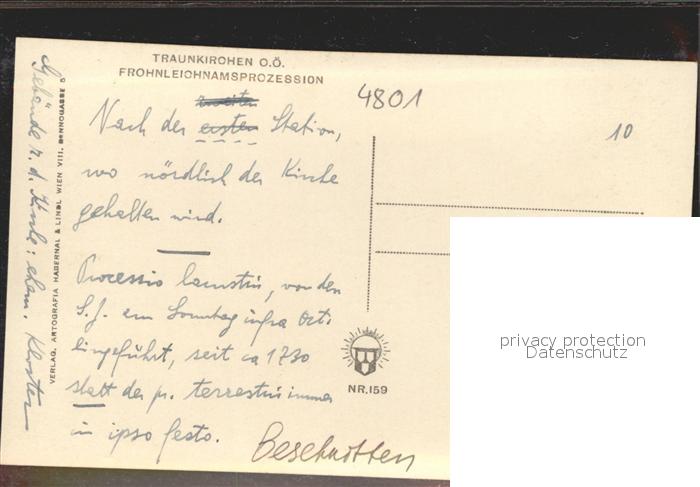 TRAUNKIRCHEN O.Ö.
FROHNLEICHNAMSPROZESSION
4801
10
zweiten
Nach der ersten Station,
wo nördlich der Kirche
gehalten wird.
Processio lacustris, von den
S.J. am Sonntag infra Oct.
eingeführt, seit ca 1730
statt der pr. terrestris immer
in ipso festo.
Beschnitten
Gebäude r. d. Kirche: ehem. Kloster
VERLAG. ARTOGRAFIA HABERNAL & LINDL WIEN VIII. BENNOGASSE 5
NR. 159
privacy protection
Datenschutz